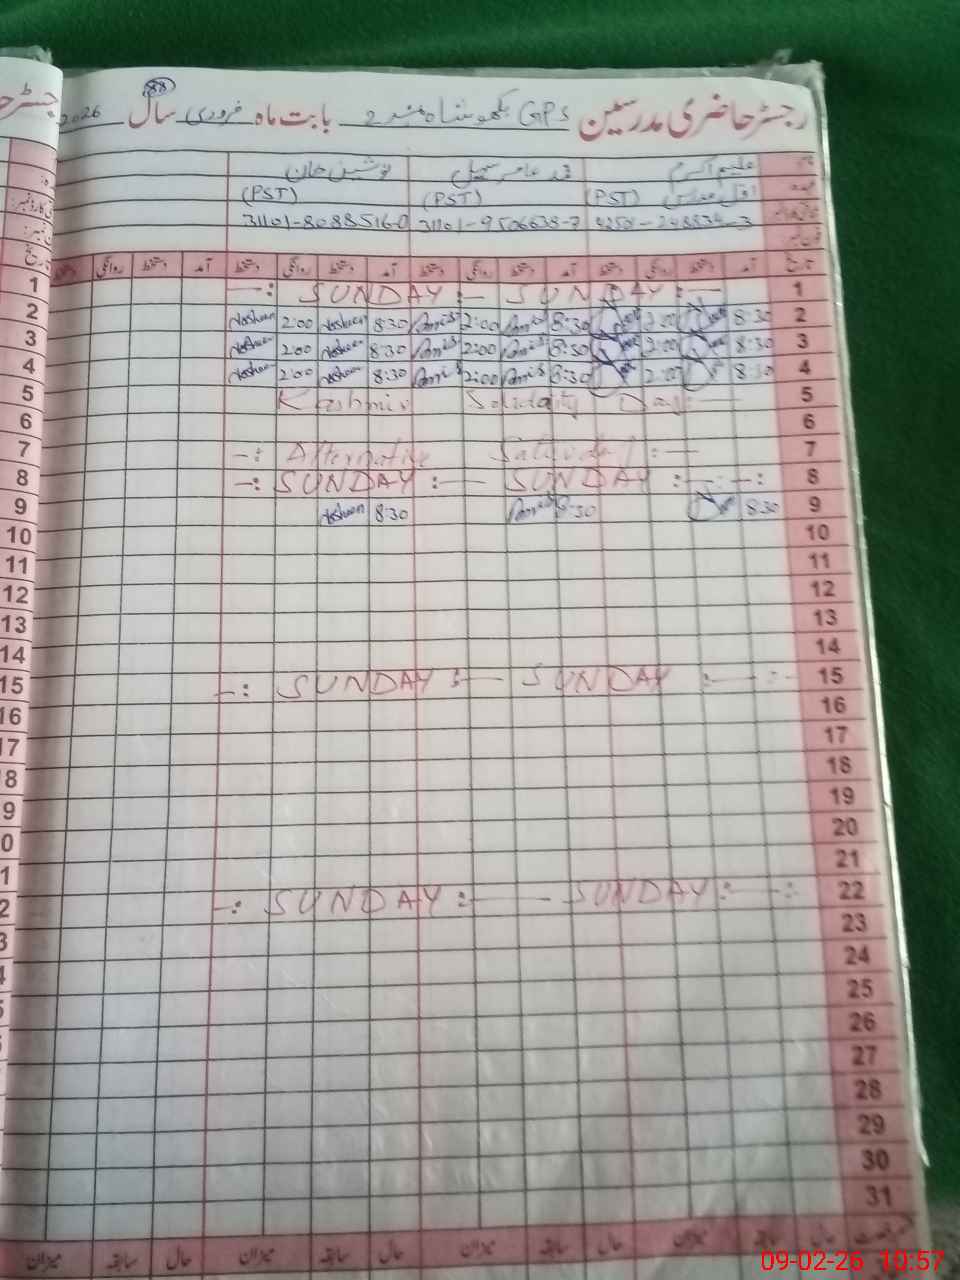 88
رجسٹر حاضری مدرسین GPS بکھو شاہ نمبر 2 بابت ماہ فروری سال 2026
نام علیم اکرم محمد عامر سہیل نوشین خان
عہدہ (PST) (PST) (PST)
31101-9506638-7 31101-8088516-0
تاریخ آمد دستخط روانگی دستخط آمد دستخط روانگی دستخط آمد دستخط روانگی دستخط آمد دستخط روانگی
1 -: SUNDAY :- SUNDAY :-
2 8:30 2:00 8:30 2:00 8:30 Nosheen 2:00 Nosheen
3 8:30 2:00 8:30 2:00 8:30 Nosheen 2:00 Nosheen
4 8:30 2:00 8:30 2:00 8:30 Nosheen 2:00 Nosheen
5 Kashmir Solidaity Day:-
6
7 -: Alternative Saturday :-
8 -: SUNDAY :- SUNDAY :- -:
9 8:30 8:30 8:30 Nosheen
10
11
12
13
14
15 -: SUNDAY :- SUNDAY :-
16
17
18
19
20
21
22 -: SUNDAY :- - SUNDAY :- -:
23
24
25
26
27
28
29
30
31
حال سابقہ میزان حال سابقہ میزان حال سابقہ میزان حال سابقہ میزان
09-02-26 10:57